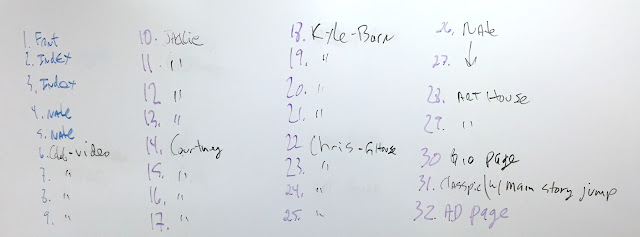 1. Front
2. Index
3. Index
4. Nate
5. Nate
6. -video
7. "
8. "
9. "
10. Jackie
11 "
12 "
13. "
14. Courtney
15. "
16. "
17.
18. Kyle-Barn
19. "
20. "
21. "
22 Chris-GHouse
23. "
24. "
25. "
26. Nate
27. ↓
28. ART House
29. "
30 Bio page
31. Classpic/w/ main story jump
32. AD page